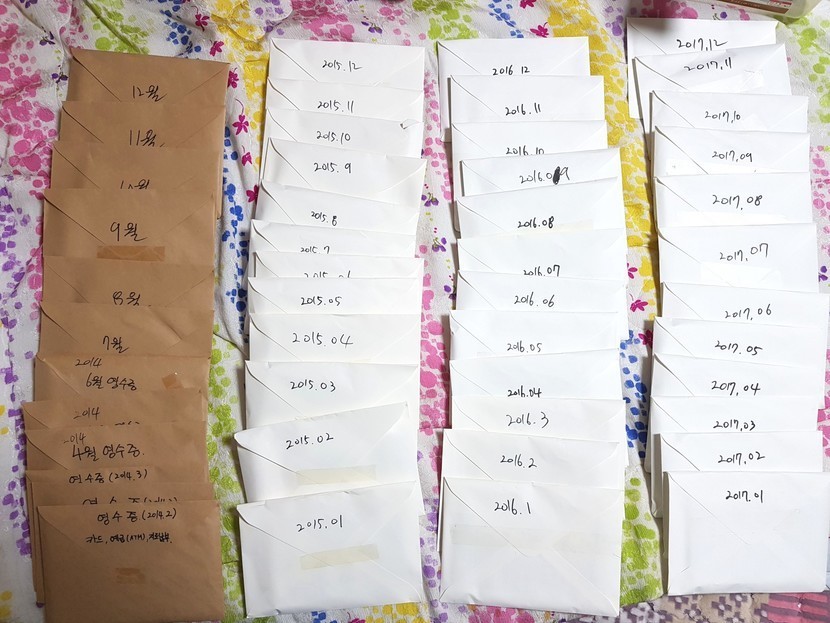 12월
11월
9월
8월
7월
2014
6월 영수증
2014
2014
4월 영수증.
영수증 (2014.3)
영수증
영수증 (2014.2)
카드, 현금(ATM),
2015.12
2015.11
2015.10
2015.9
2015.8
2015.7
2015.06
2015.05
2015.04
2015.03
2015.02
2015.01
2016.12
2016.11
2016.10
2016.09
2016.08
2016.07
2016.06
2016.05
2016.04
2016.3
2016.2
2016.1
2017.12
2017.11
2017.10
2017.09
2017.08
2017.07
2017.06
2017.05
2017.04
2017.03
2017.02
2017.01